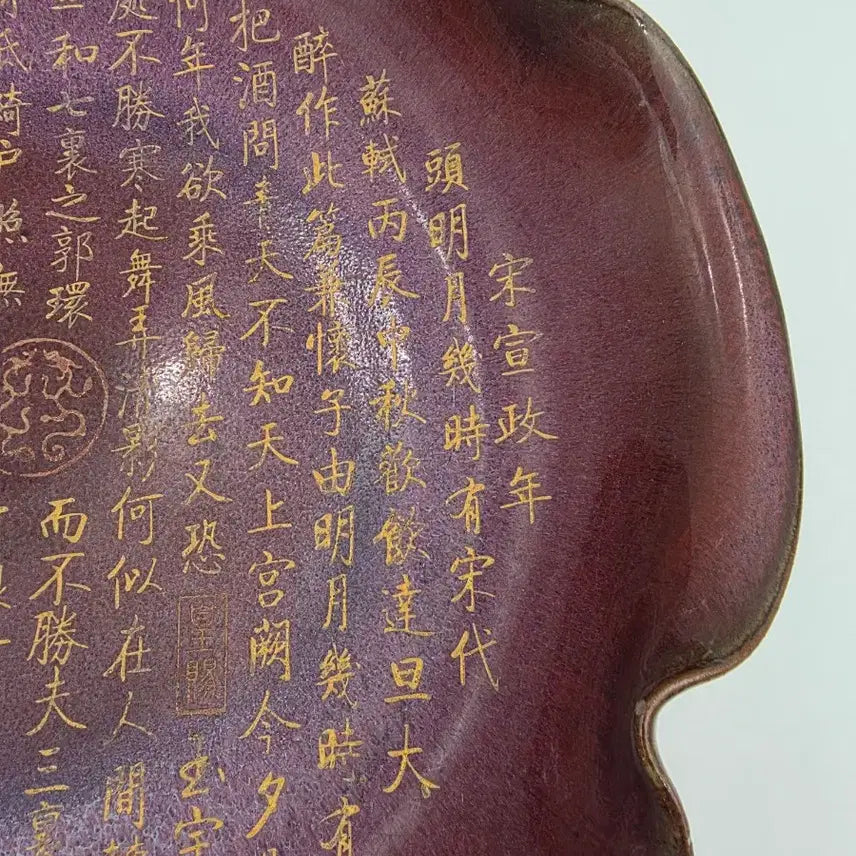 宋宣政年
頭明月幾時有宋代
蘇軾丙辰中秋歡飲達旦大
醉作此篇兼懷子由明月幾時有
把酒問青天不知天上宮闕今夕
何年我欲乘風歸去又恐
皇賜
玉宇
處不勝寒起舞弄清影何似在人間
和七裏之郭環
而不勝夫三裏
綺户照無